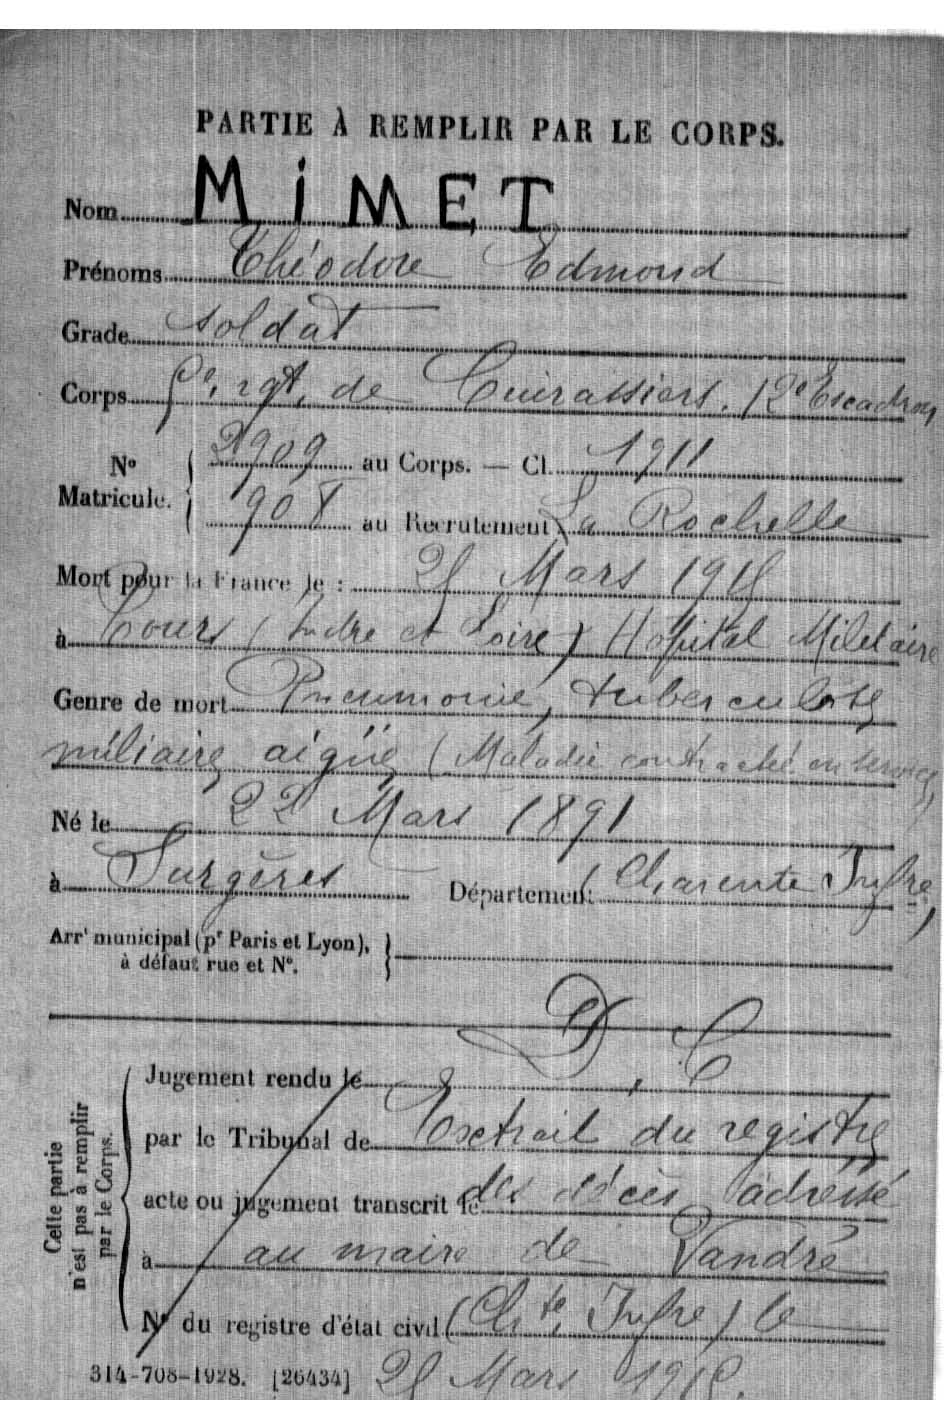 PARTIE À REMPLIR PAR LE CORPS.
Nom MiMET
Prénoms Théodore Edmond
Grade soldat
Corps rgt. de Cuirassiers. (2e Escadron
No 2909 au Corps. — Cl. 1911
Matricule. 908 au Recrutement La Rochelle
Mort pour la France le : Mars
à Tours (Indre et Loire) Hôpital Militaire
Genre de mort Pneumonie, tuberculose
miliaire aigüe (Maladie contractée en service)
Né le 22 Mars 1891
à Surgères Département (Charente Infre)
Arrt municipal (pr Paris et Lyon),
à défaut rue et No.
D. C
Cette partie
n'est pas à remplir
par le Corps.
Jugement rendu le
par le Tribunal de Extrait du registre
acte ou jugement transcrit le des décès adressé
à au maire de Vandré
No du registre d'état civil (Chte Infre) le
314-708-1928. [26434] Mars